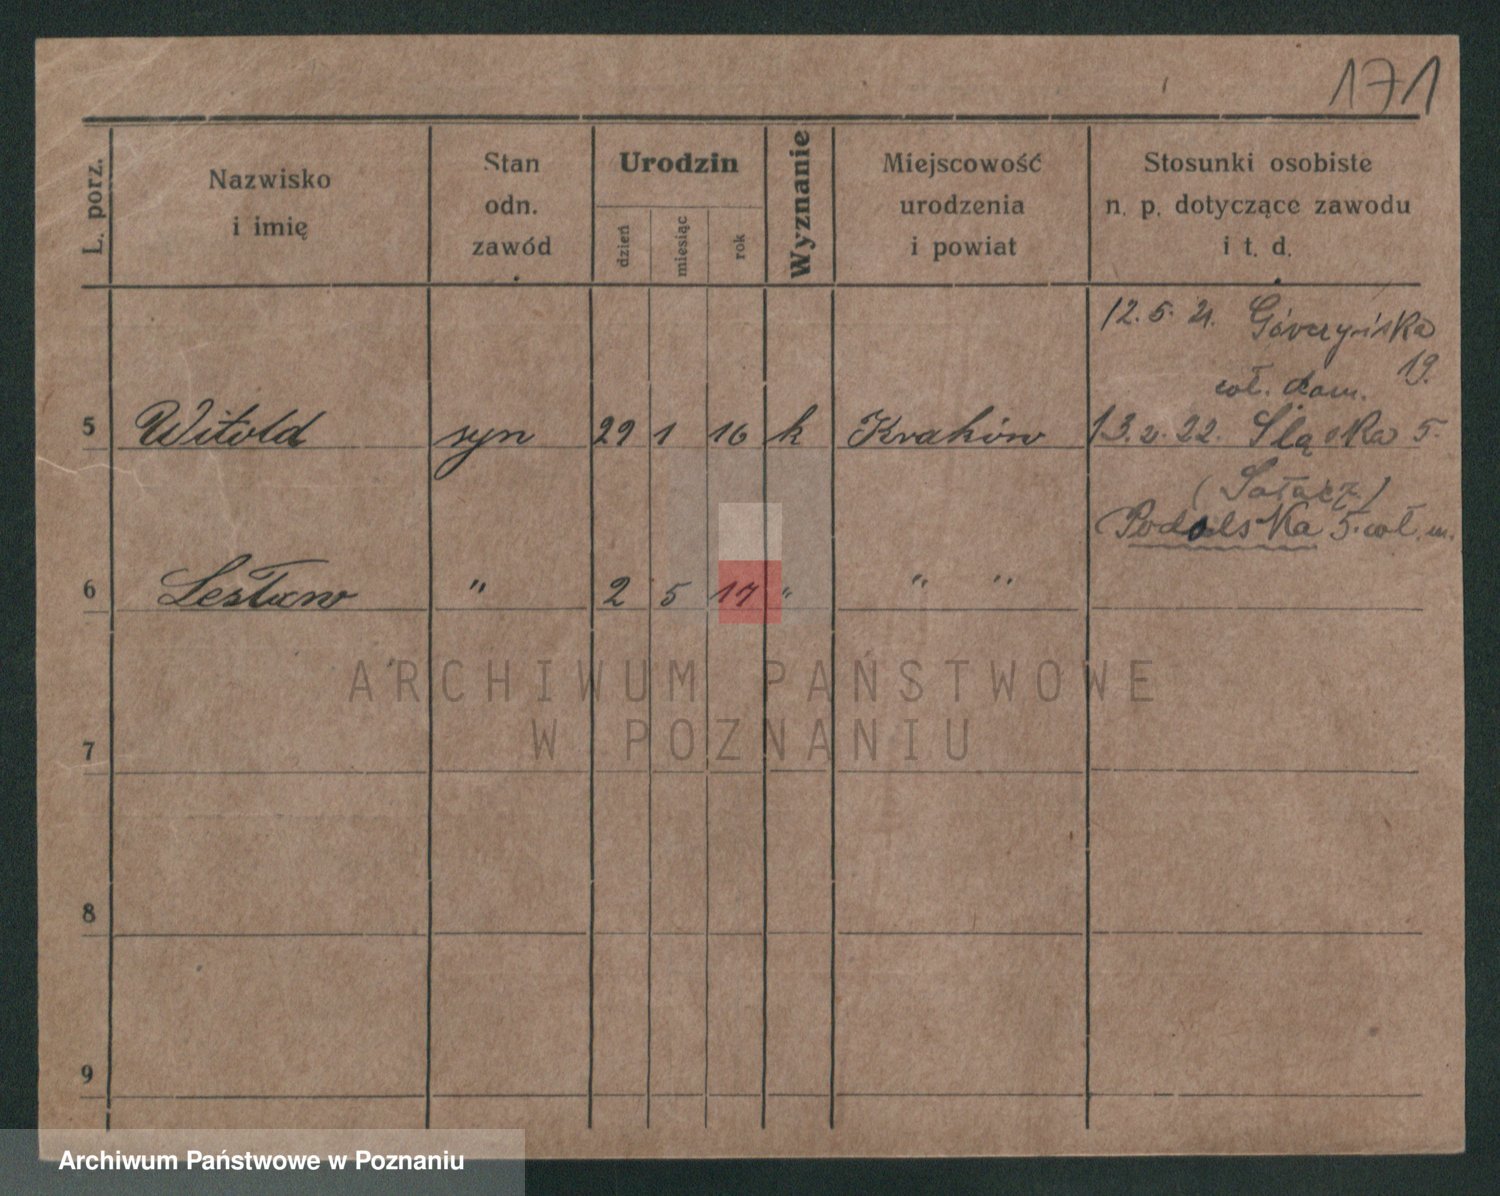 171
L. porz.
Nazwisko
i imię
Stan
odn.
zawód
Urodzin
dzień
miesiąc
rok
Wyznanie
Miejscowość
urodzenia
i powiat
Stosunki osobiste
n. p. dotyczące zawodu
i t. d.
12. 5. 21. Górczyńska
19.
wł. dom.
5 Witold syn 29 1 16 k Kraków 13. 2. 22. Śląska 5.
(Sołacz)
Podolska 5. wł. m.
6 Lesław " 2 5 17 " " "
ARCHIWUM PAŃSTWOWE
W POZNANIU
7
8
9
Archiwum Państwowe w Poznaniu